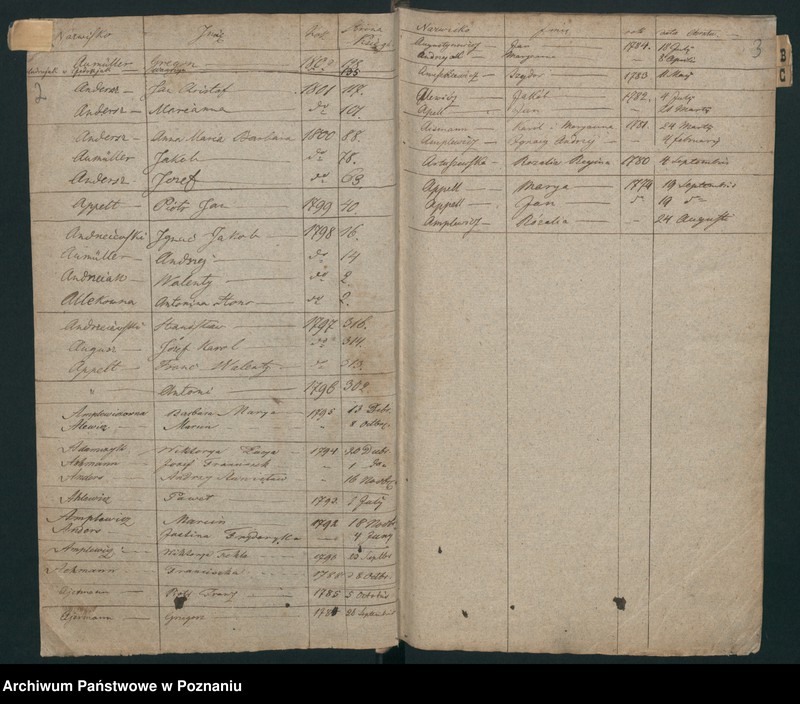 Nazwisko Imię Rok Strona Księgi
Aumüller Gregor
2
Anders Jan Kristof 1801 118.
Anders Marianna do 101.
Anders Anna Maria Barbara 1800 88.
Aumüller Jakob do 78.
Anders Josef do 63
Appelt Piotr Jan 1799 40
Andrzeiewski Ignac Jakob 1798 16.
Aumüller Andrzej do 14
Andrzeiak Walenty do 2.
Allekowna Antonina do 2.
Andrzeiewski Stanisław 1797 316.
August Józef Karol do 314.
Appelt Franc Walenty do 313.
" Antoni 1796 302
Amplewiczowna Barbara Marya 1795 13 Debr.
Alewicz Marcin " 8 Octbr.
Adamczyk Wiktorya 1794 20 Decbr.
Ackmann Josef Franciszek " 1 do
Anders Andrzej Stanisław " 16 Novbr
Ahlewicz Paweł 1793 7 July
Amplewicz Marcin 1792 18 Novb.
Anders Fryderyka 4 Juny
Amplewicz Wiktorya Tekla 1790 23 Septbr
Ackmann Franciszka 1788 8 Octbr.
Ajermann Franz 1785 5 Octobris
Ajermann Gregorz 26 Septembris
Nazwisko Imie
3
Augustynowicz Jan 1784. 18 July
Andrzejak Maryanna 8 Aprilis
Amplewicz Izydor 1783 8 May
Alewicz Jakób 1782. 4 July
Apelt Jan — 20 Marty
Assmann Karol i Maryanna 1781 24 Marty
Amplewicz Ignacy Andrzej — 4 february
Artuszewska Rozalia Regina 1780 4 Septembris
Appell Marya 19 Septembris
Appell Jan 19
Amplewicz Rózalia — 24 Augusti
B
C
Archiwum Państwowe w Poznaniu